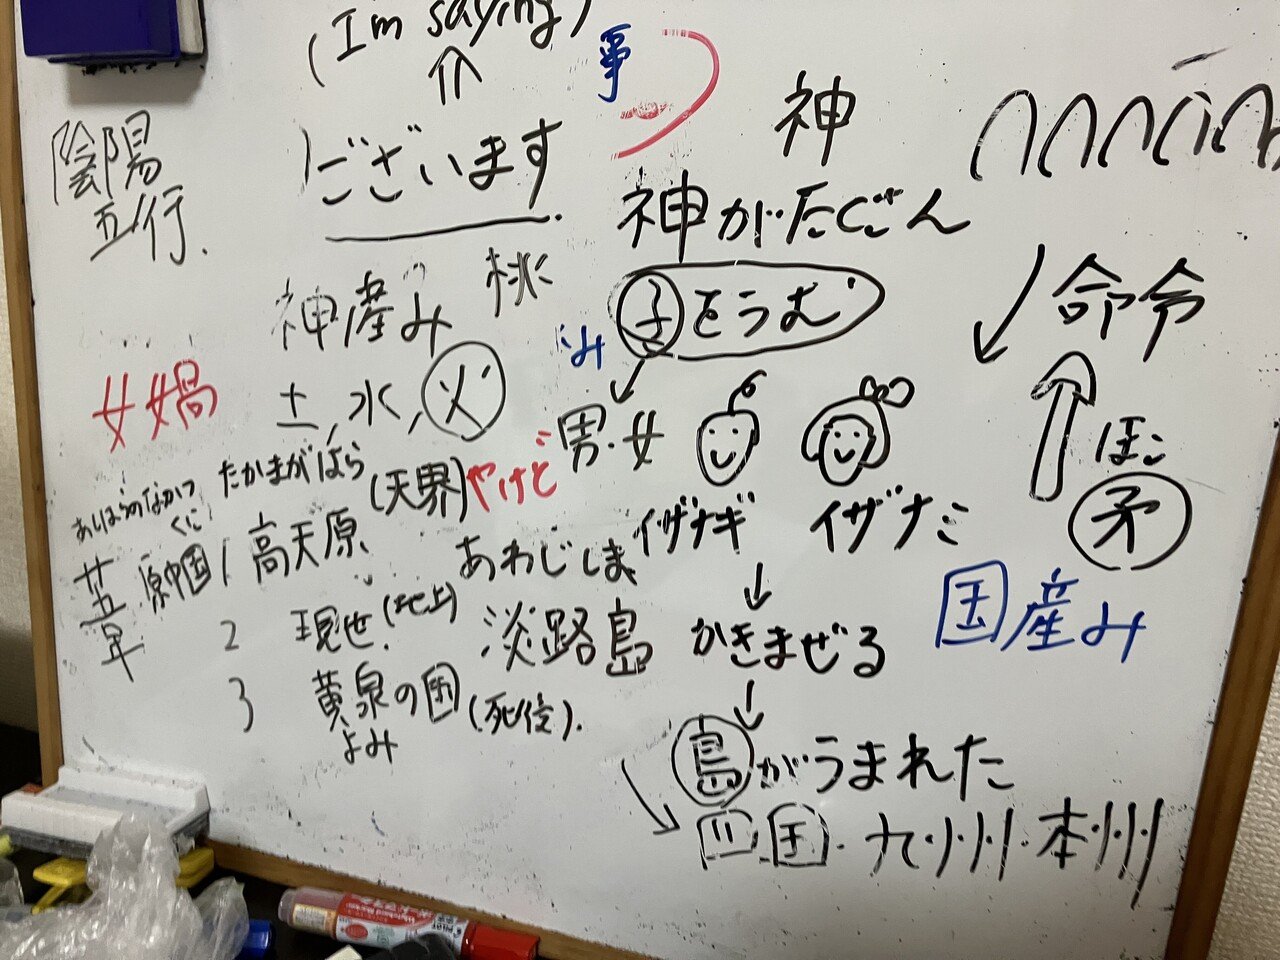 (I'm saying)
事
ございます
陰陽
五行.
神
神がたくさん
神産み
桃
子をうむ
み
命令
女媧
土,水,火
男・女
ほこ
矛
たかまがはら
やけど
高天原
(天界)
1
イザナギ
イザナミ
あしはらのなかつ
くに
葦原中国
あわじしま
淡路島
2 現世.(地上)
かきまぜる
国産み
3 黄泉の国(死後).
よみ
島がうまれた
四国・九州・本州